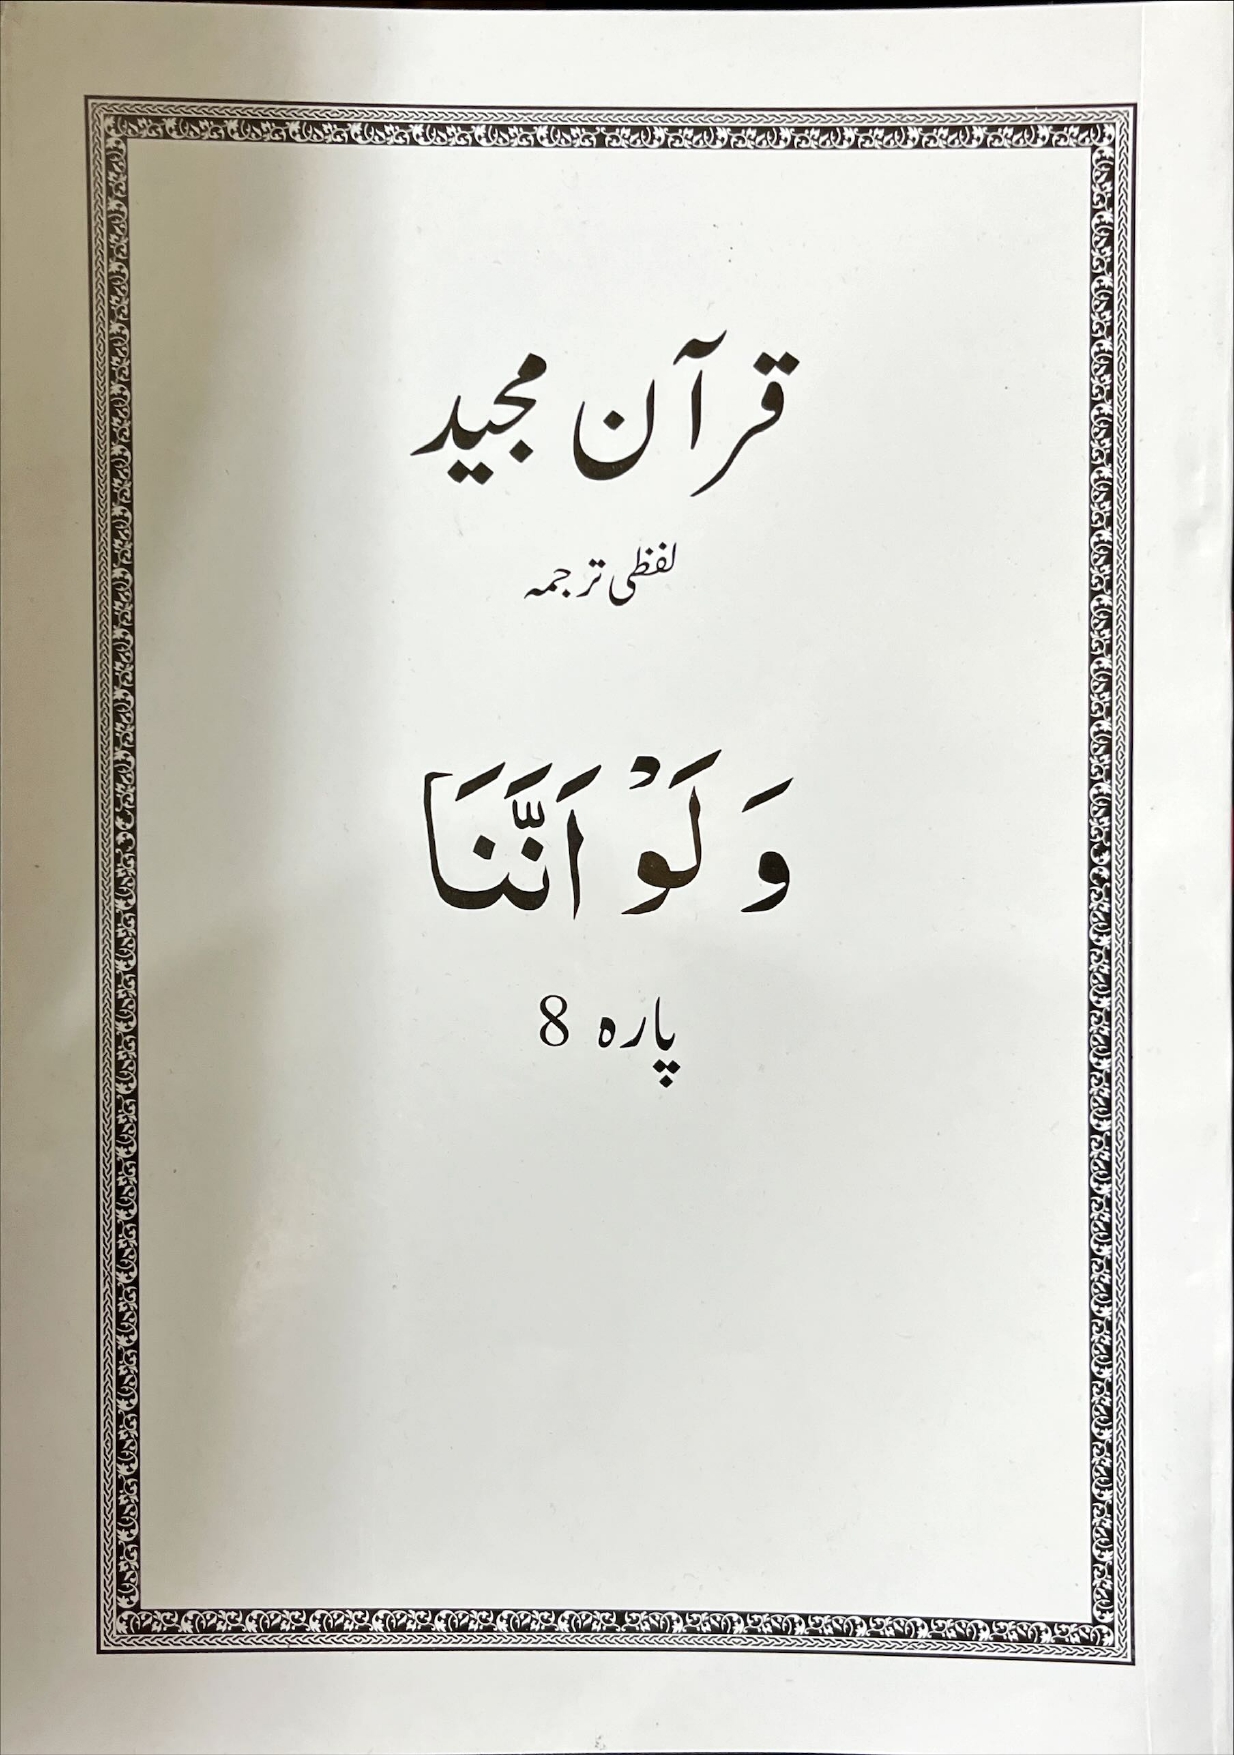 قرآن مجید
لفظی ترجمہ
وَ لَوْ اَنَّنَا
پارہ 8